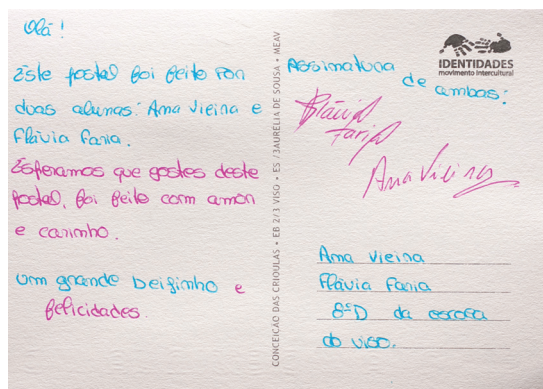 Olá!
Este postal foi feito por
duas alunas: Ana Vieira e
Flávia Faria.
Esperamos que gostes deste
postal, foi feito com amor
e carinho.
Um grande beijinho e
felicidades.
CONCEIÇÃO DAS CRIOULAS • EB 2/3 VISO • ES /3AURÉLIA DE SOUSA • MEAV
IDENTIDADES
movimento intercultural
Assinatura
de ambas:
Flávia
Faria
Ana Vieira
Ana Vieira
Flávia Faria
8ºD da escola
do viso.